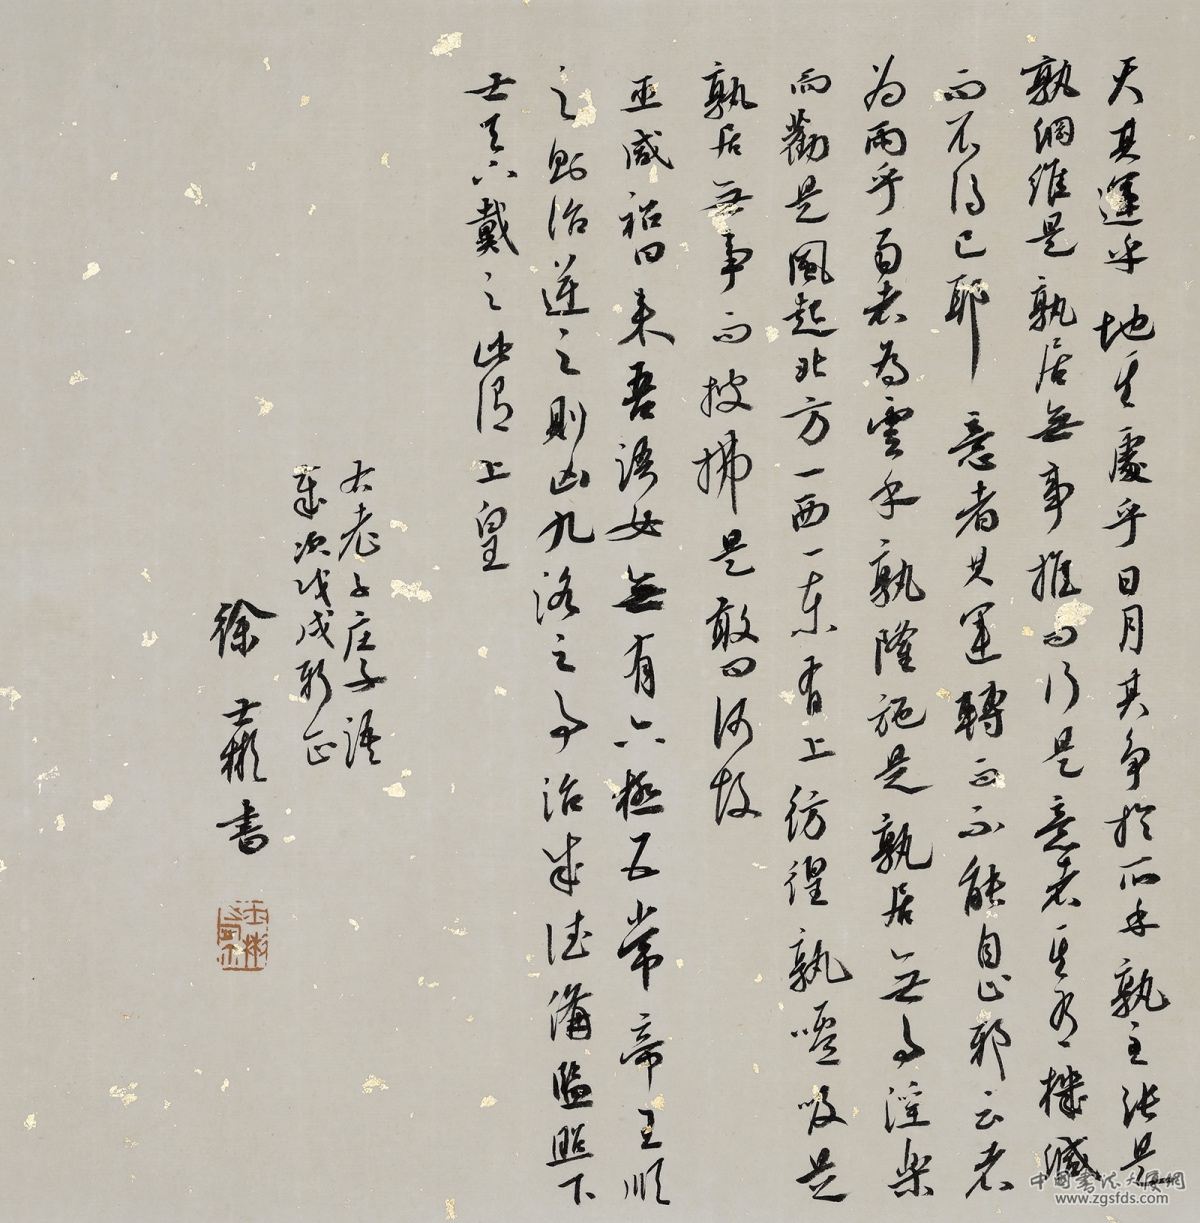 天其運乎地其處乎日月其爭於所乎孰主張是
孰綱維是孰居無事推而行是意者其有機緘
而不得已耶意者其運轉而不能自止邪雲者
為雨乎雨者為雲乎孰隆施是孰居無事淫樂
而勸是風起北方一西一東有上彷徨孰噓吸是
孰居無事而披拂是敢問何故
巫咸祒曰來吾語女天有六極五常帝王順
之則治逆之則凶九洛之事治成德備監照下
土天下戴之此謂上皇
右老子庄子語
歲次戊戌新正
徐士彬書
中國書法大廈網
www.zgsfds.com